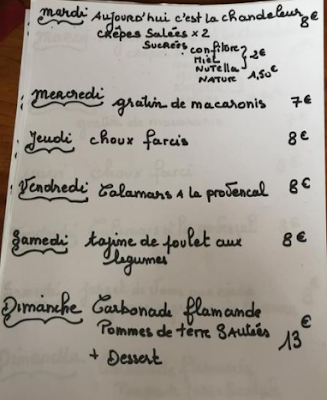 mardi Aujourd'hui c'est la chandeleur 8€
crêpes Salées x 2
Sucrées confiture
Miel 2€
Nutella
NATURE 1,50€
Mercredi gratin de macaronis 7€
Jeudi choux farcis 8€
Vendredi Calamars A la provencal 8€
Samedi tajine de poulet aux 8€
legumes
Dimanche Carbonade flamande
Pommes de terre sautées 13€
+ Dessert